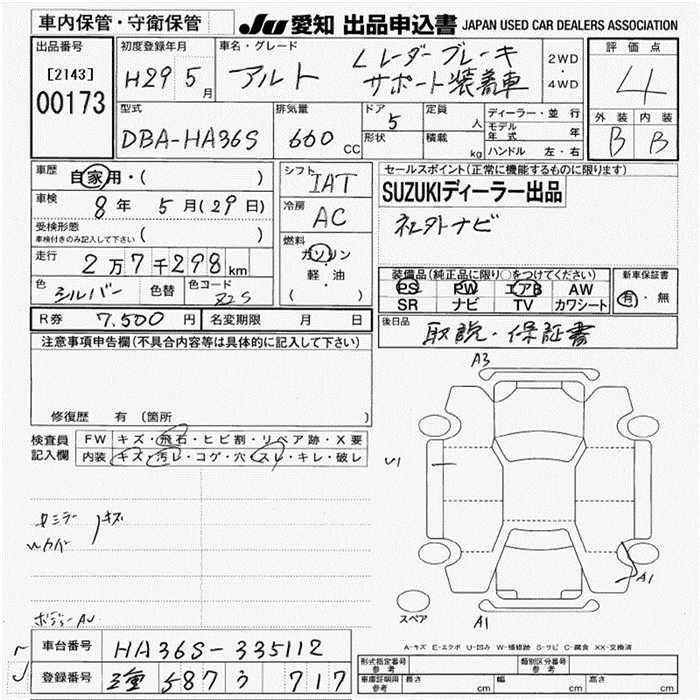 車内保管・守衛保管
JU 愛知 出品申込書 JAPAN USED CAR DEALERS ASSOCIATION
出品番号 [2143] 00173
初度登録年月 H29 5月
車名・グレード アルト Lレーダーブレーキ サポート装着車
2WD・4WD
評価点 4
外装 B 内装 B
型式 DBA-HA36S
排気量 660 CC
ドア 5 形状
定員 人 積載 kg
ディーラー・並行
モデル年式 年
ハンドル 左・右
車歴 自家用・( )
車検 8年 5月(29日)
受検形態 車検付きのみ記入して下さい ( )
走行 2万7千298km
色 シルバー 色替 色コード Z2S
シフト IAT
冷房 AC
燃料 ガソリン 軽・油 ( )
セールスポイント(正常に機能するものに限ります)
SUZUKIディーラー出品
社外ナビ
装備品(純正品に限り○をつけてください)
PS PW エアB AW
SR ナビ TV カワシート
新車保証書 有・無
後日品 取説・保証書
R券 7.500円 名変期限 月 日
注意事項申告欄(不具合内容等は具体的に記入して下さい)
修復歴 有(箇所 )
検査員記入欄
FW キズ・飛石・ヒビ割・リペア跡・X要
内装 キズ・汚レ・コゲ・穴・スレ・キレ・破レ
A3
U1
A1
スペア
A1
A-キズ E-エクボ U-凹み W-補修跡 S-サビ C-腐食 XX-交換済
車台番号 HA36S-335112
登録番号 三重 587 717
型式指定番号 参考 類別区分番号 参考
車庫証明用 参考 長さ cm 幅 cm 高さ cm